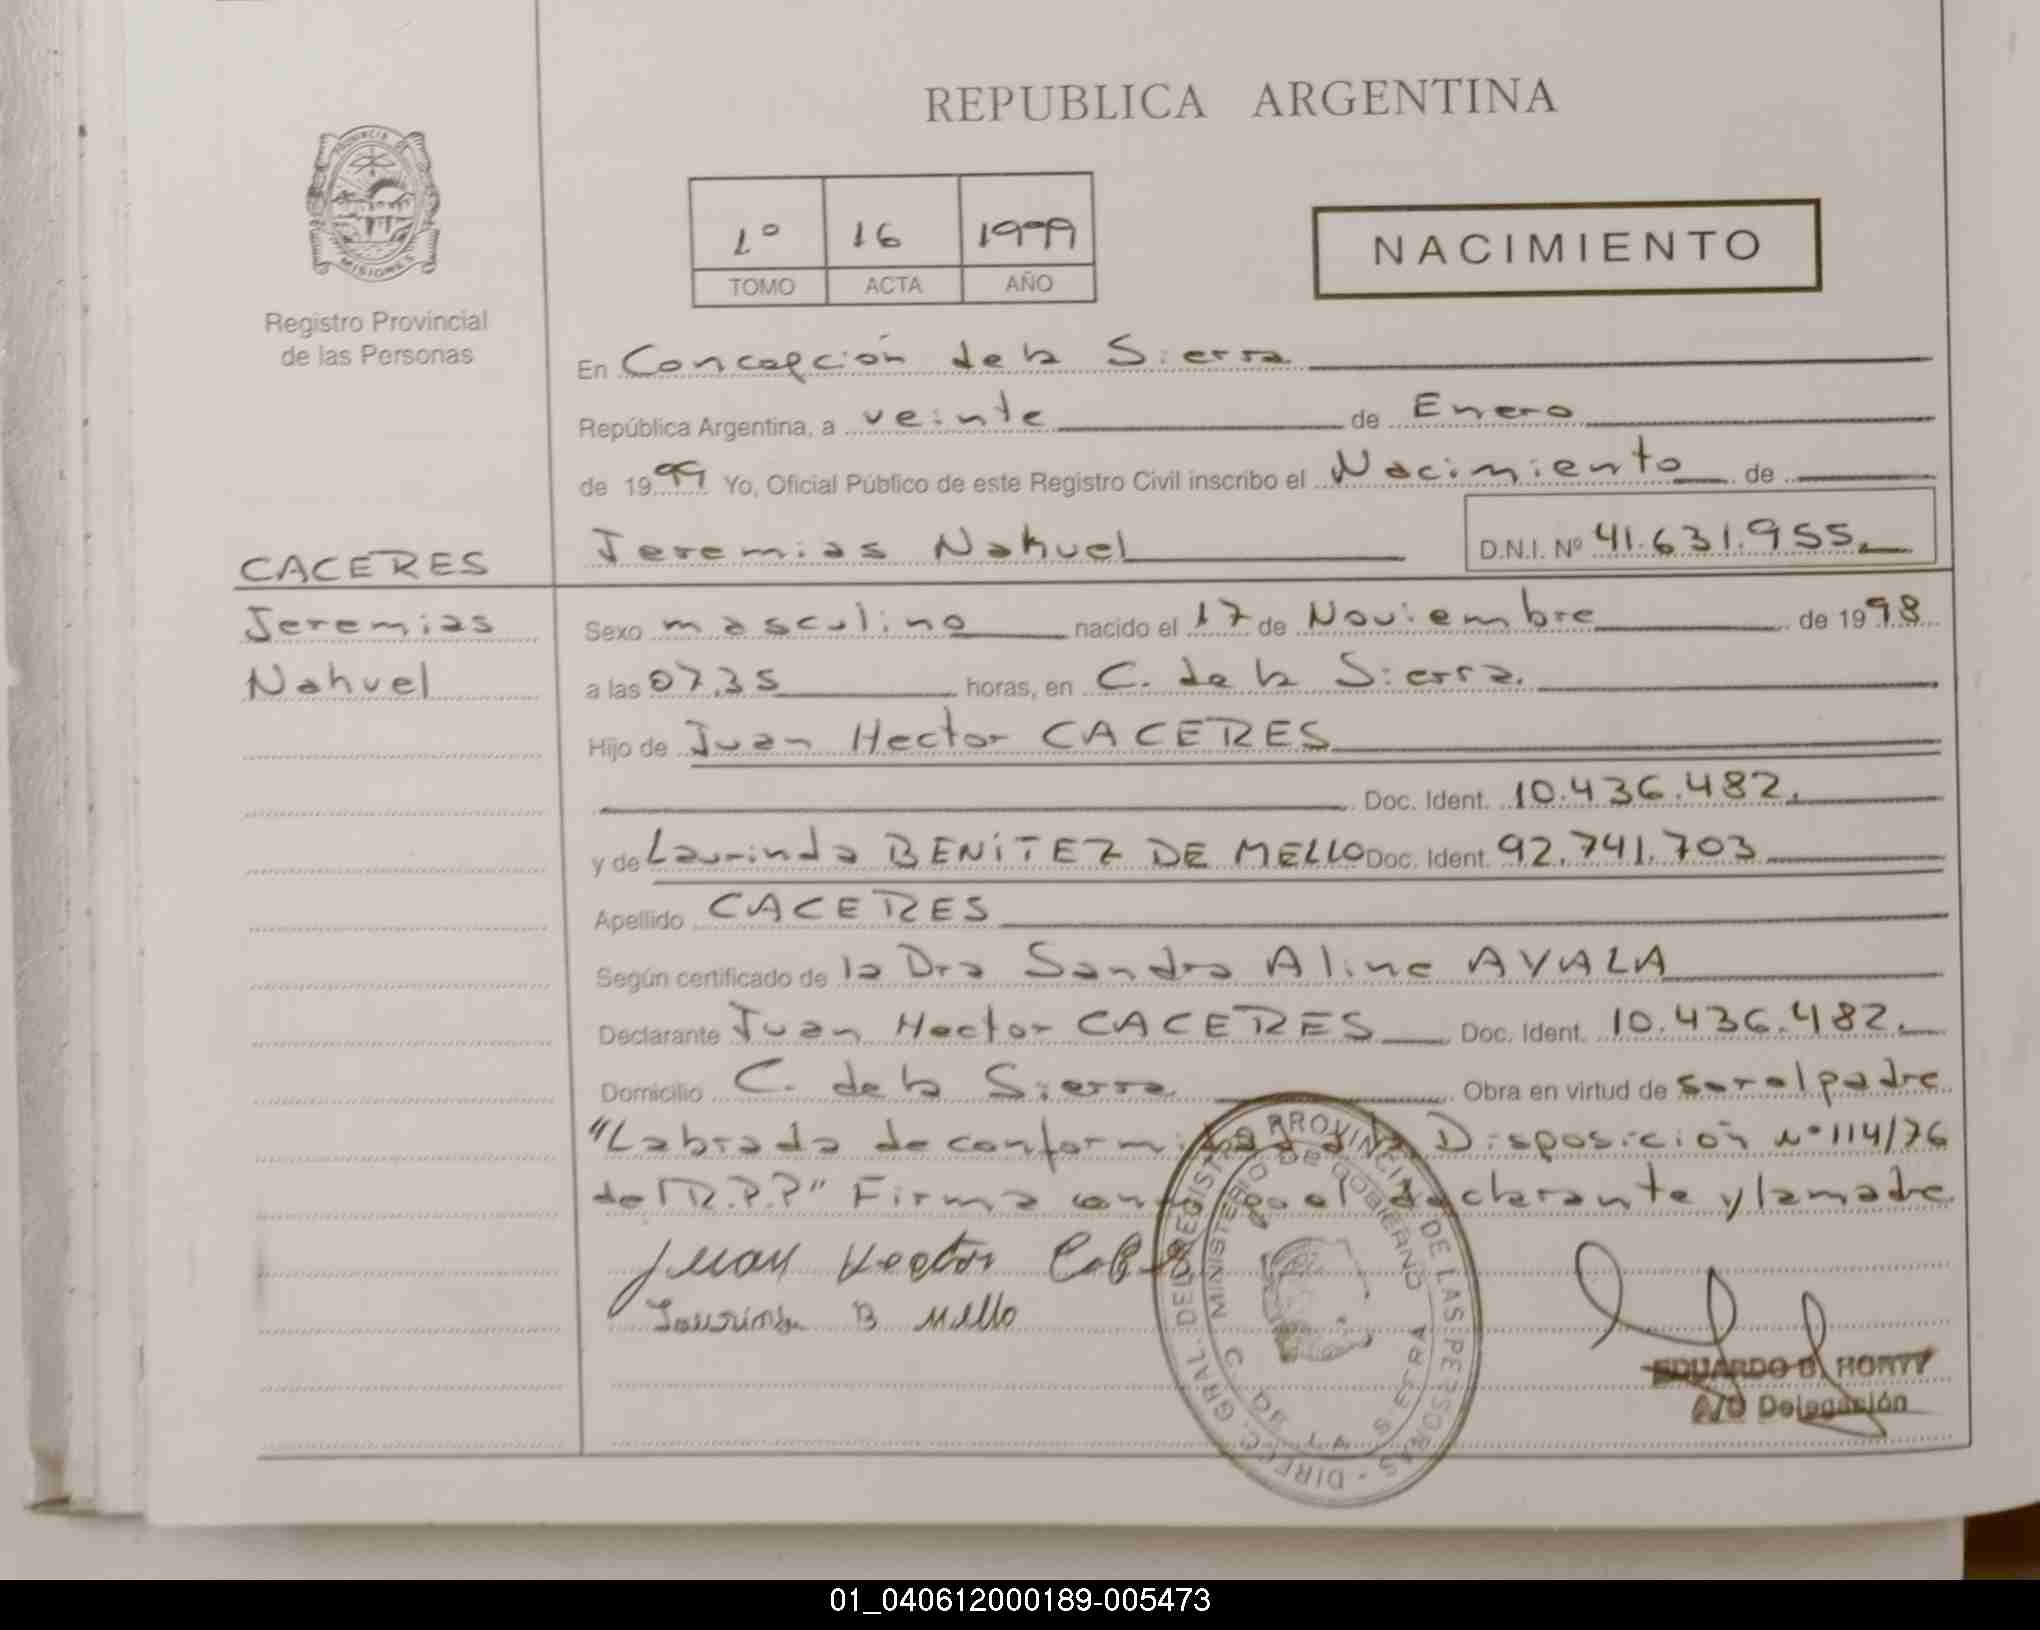 REPUBLICA ARGENTINA
PROVINCIA DE MISIONES
Registro Provincial
de las Personas
1º 16 1999
TOMO ACTA AÑO
NACIMIENTO
En Concepción de la Sierra
República Argentina, a veinte de Enero
de 1999 Yo, Oficial Público de este Registro Civil inscribo el Nacimiento de
CACERES
Jeremias
Nahuel
Jeremias Nahuel D.N.I. Nº 41.631.955.
Sexo masculino nacido el 17 de Noviembre de 1998
a las 07,35 horas, en C. de la Sierra.
Hijo de Juan Hector CACERES
Doc. Ident. 10.436.482.
y de Laurinda BENíTEZ DE MELLO Doc. Ident. 92.741.703
Apellido CACERES
Según certificado de la Dra Sandra Aline AYALA
Declarante Juan Hector CACERES Doc. Ident. 10.436.482.
Domicilio C. de la Sierra Obra en virtud de ser el padre
"Labrada de conformidad a la Disposición nº 114/76
del R.P.P" Firma conmigo el declarante y la madre
Juan Hector
Laurinda B Mello
DIREC. GRAL. DEL REGISTRO PROVINCIAL DE LAS PERSONAS
MINISTERIO DE GOBIERNO
C. DE LA SIERRA
EDUARDO D.
A/C Delegación
01_040612000189-005473